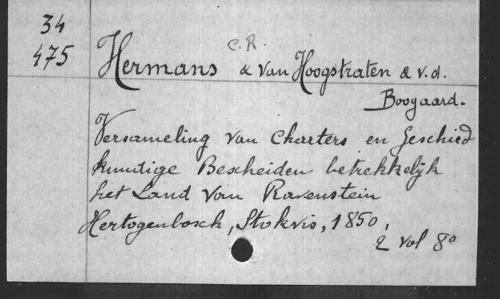 34
475
C.R.
Hermans & Van Hoogstraten & v.d.
Boogaard.
Versameling van Charters en Geschied
kundige Bescheiden betrekkelijk
het Land van Ravenstein
Hertogenbosch, Stokvis, 1850,
2 vol 8º